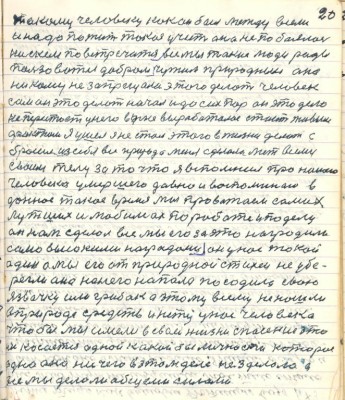 20
такому человеку как он был между всем
и надо пожить такая учеть она не побаялася
ни с кем повстречатся, вы мы такие люди рады
пользоватся добром чужим природным она
никому не запрещала этого делать человек
сам он это делал начал и до сих пор он это дело
не перестал у него одно вырабатолос стать таким
Я ушел я не стал этого в жизни делать с
бросил из себя все природа меня сделала
своим телу за то что я вспомнил про нашего
человека умершего давно и воспоминаю в
данное такое время мы провожаем самих
лутших и любимых по работе и по делу
он нам сделал все мы его за это наградили
само высокими наградами, он у нас такой
один а мы его от природной стихеи не убе-
регли она на него напала посадила свою
язвачку или грибок а этому всему не нашли
в природе средств и нету у нас человека
чтобы мы имели в своей жизни спасение это
и косается одной какой бы личности которая
одна она ничего в этом деле не зделала а
все мы делали общеми силами